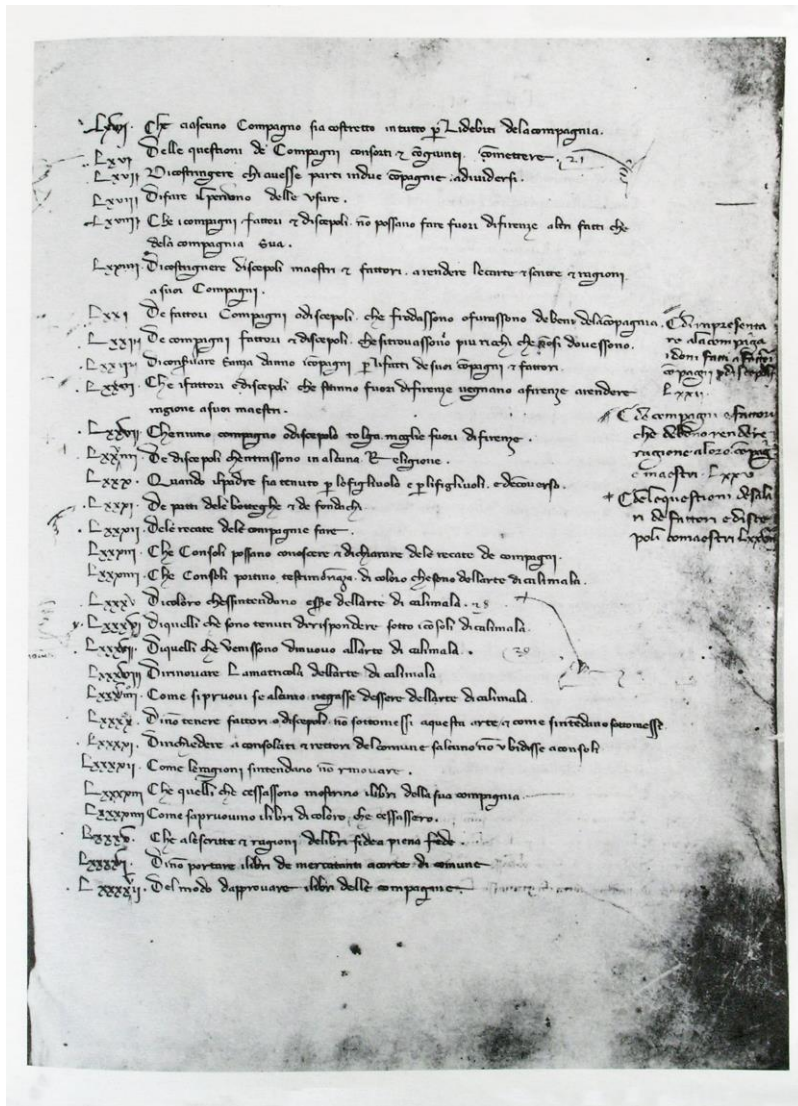 Lxvi. Che ciascuno Compagno sia costretto intutto p Lidebiti delacompagnia.
Lxvi Delle questioni de Compagni consorti & cōgiunti. cōmettere. 21
Lxvii Di costringere chi avesse parte indue cōpagnie. adividersi.
Lxviii Di fare il perdono delle usure.
Lxviiii Che i compagni fattori & discepoli. nō possano fare fuori difirenze altri fatti che
dela compagnia sua.
Lxxiiii Di costrignere discepoli maestri & fattori. arendere lecarte & scritte & ragioni
asuoi Compagni.
Lxxi De fattori Compagni odiscepoli. che frodassono ofurassono debeni delacōpagnia.
Lxxiii De compagni fattori & discepoli. chesitrovassono piu richi che cosi dovessono.
Lxxiiii Di conservare sanza danno icōpagni p lifatti de suoi cōpagni & fattori.
Lxxvi Che ifattori ediscepoli che stanno fuori difirenze vegnano afirenze arendere
ragione asuoi maestri.
Lxxvii. Che niuno compagno odiscepolo tolga moglie fuori difirenze.
Lxxviiii De discepoli chentrassono in alcuna Religione.
Lxxx. Quando ilpadre sia tenuto p lofigliuolo e p lifigliuoli. edcōverso.
Lxxxi De patti dele botteghe & de fondachi.
Lxxxii Dele recate dele compagnie fare.
Lxxxiii Che Consoli possano conoscere & dichiarare dele recate de compagni.
Lxxxiiii Che Consoli portino testimoniāza. di coloro chesono dellarte di calimala.
Lxxxv Di coloro chessintendano esse dellarte di calimala. 28
Lxxxvi Di quelli che sono tenuti dirispondere sotto icōsoli di calimala.
Lxxxvii Di quelli che venissono dinuovo allarte di calimala.
Lxxxviii Dirinovare Lamatricola dellarte di calimala
Lxxxviiii Come sipruovi se alcuno negasse dessere dellarte di calimala.
Lxxxx Dinō tenere fattori o discepoli. nō sottomessi. aquesta arte & come sintēdano sottomessi.
Lxxxxi Dinchiedere a consolati & rettori delcomune salcuno nō ubidisse aconsoli
Lxxxxii Come leragioni sintendano nō rinovare.
Lxxxxiii Che quelli che cessassono mostrino ilibri della sua compagnia
Lxxxxiiii Come sapruovino ilibri di coloro che cessassero.
Lxxxxv. Che alescritte & ragioni delibri sidea piena fede.
Lxxxxvi Dinō portare ilibri de mercatanti acorte di comune
Lxxxxvii Del modo dapprovare ilibri delle compagnie.
Di rapresenta
re ala compagnia
idoni fatti a fattori
cōpagni discepoli
Lxxii
De compagni & fattori
che debbono rendere
ragione aloro cōpag
e maestri. Lxxv
Dele questioni desala
ri de fattori edisce
poli comaestri